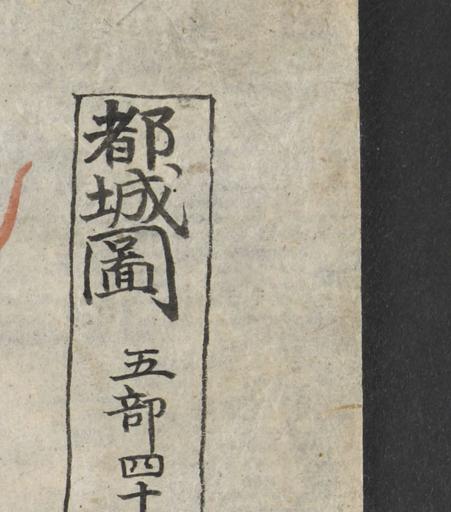 都城圖 五部四十